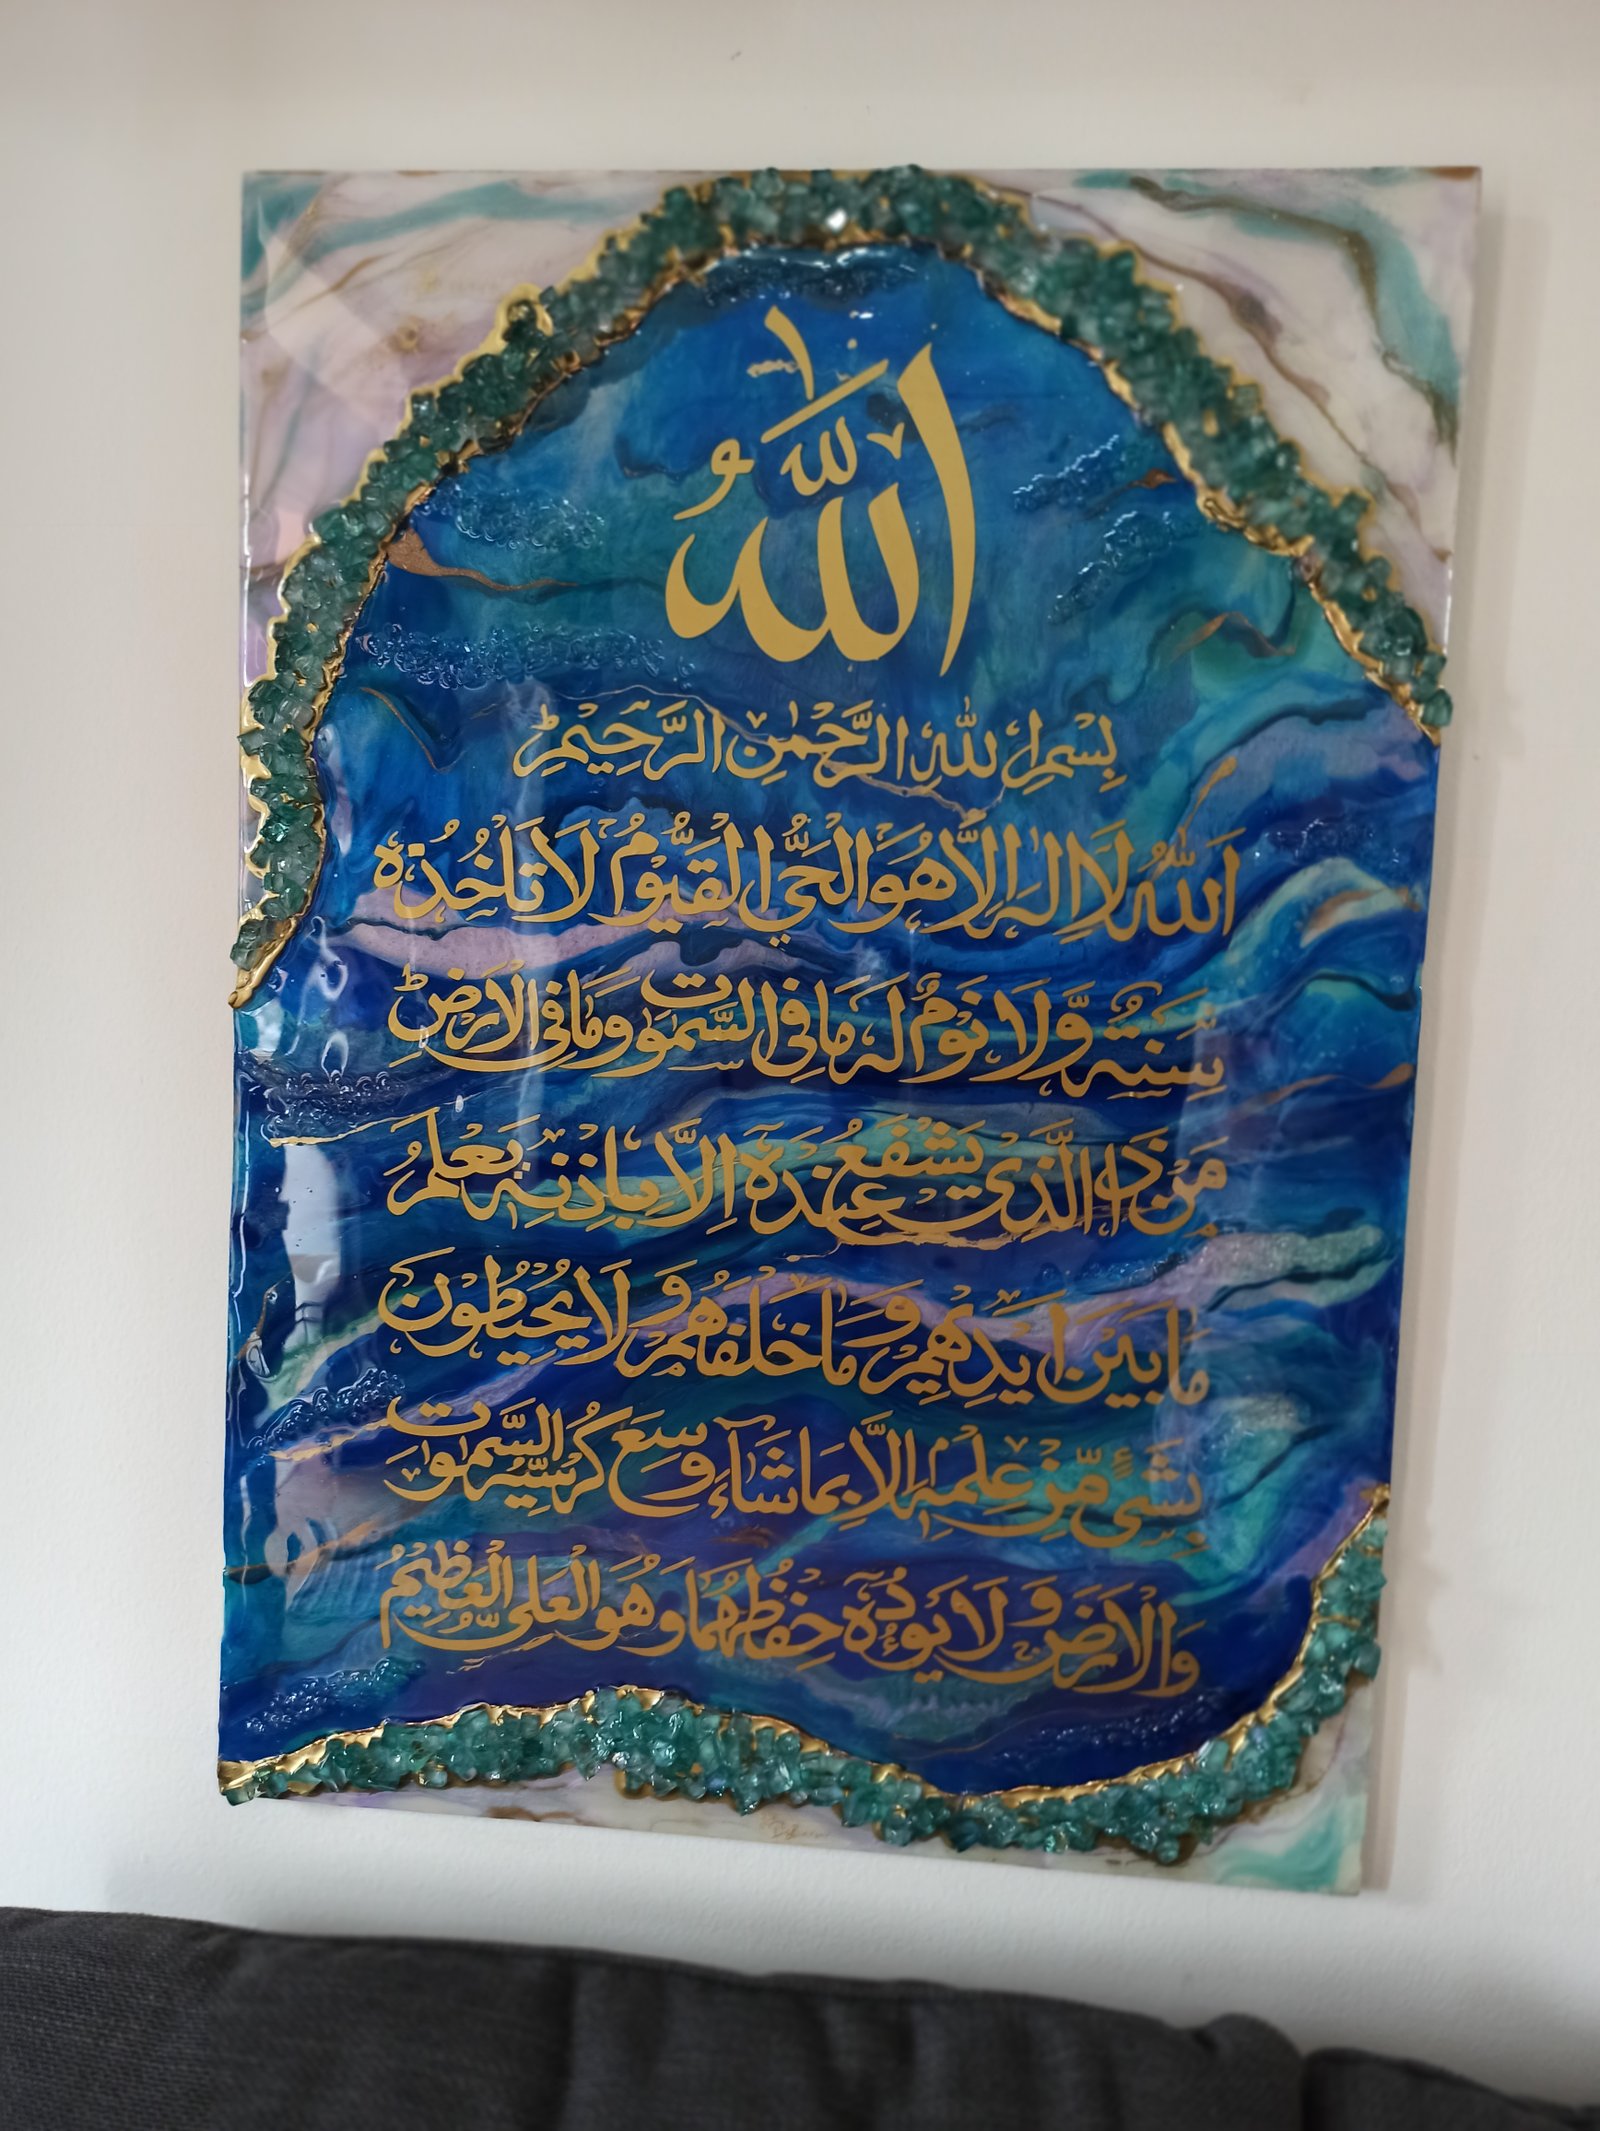 اللّٰهُ
بِسْمِ اللّٰهِ الرَّحْمٰنِ الرَّحِيْمِ ط
اَللّٰهُ لَاۤ اِلٰهَ اِلَّا هُوَ الْحَيُّ الْقَيُّوْمُ لَا تَاْخُذُهٗ
سِنَةٌ وَّلَا نَوْمٌ لَهٗ مَا فِی السَّمٰوٰتِ وَمَا فِی الْاَرْضِ ط
مَنْ ذَا الَّذِیْ يَشْفَعُ عِنْدَهٗۤ اِلَّا بِاِذْنِهٖ يَعْلَمُ
مَا بَيْنَ اَيْدِيْهِمْ وَمَا خَلْفَهُمْ وَلَا يُحِيْطُوْنَ
بِشَیْءٍ مِّنْ عِلْمِهٖۤ اِلَّا بِمَا شَآءَ وَسِعَ كُرْسِيُّهُ السَّمٰوٰتِ
وَالْاَرْضَ وَلَا يَـُٔوْدُهٗ حِفْظُهُمَا وَهُوَ الْعَلِیُّ الْعَظِيْمُ